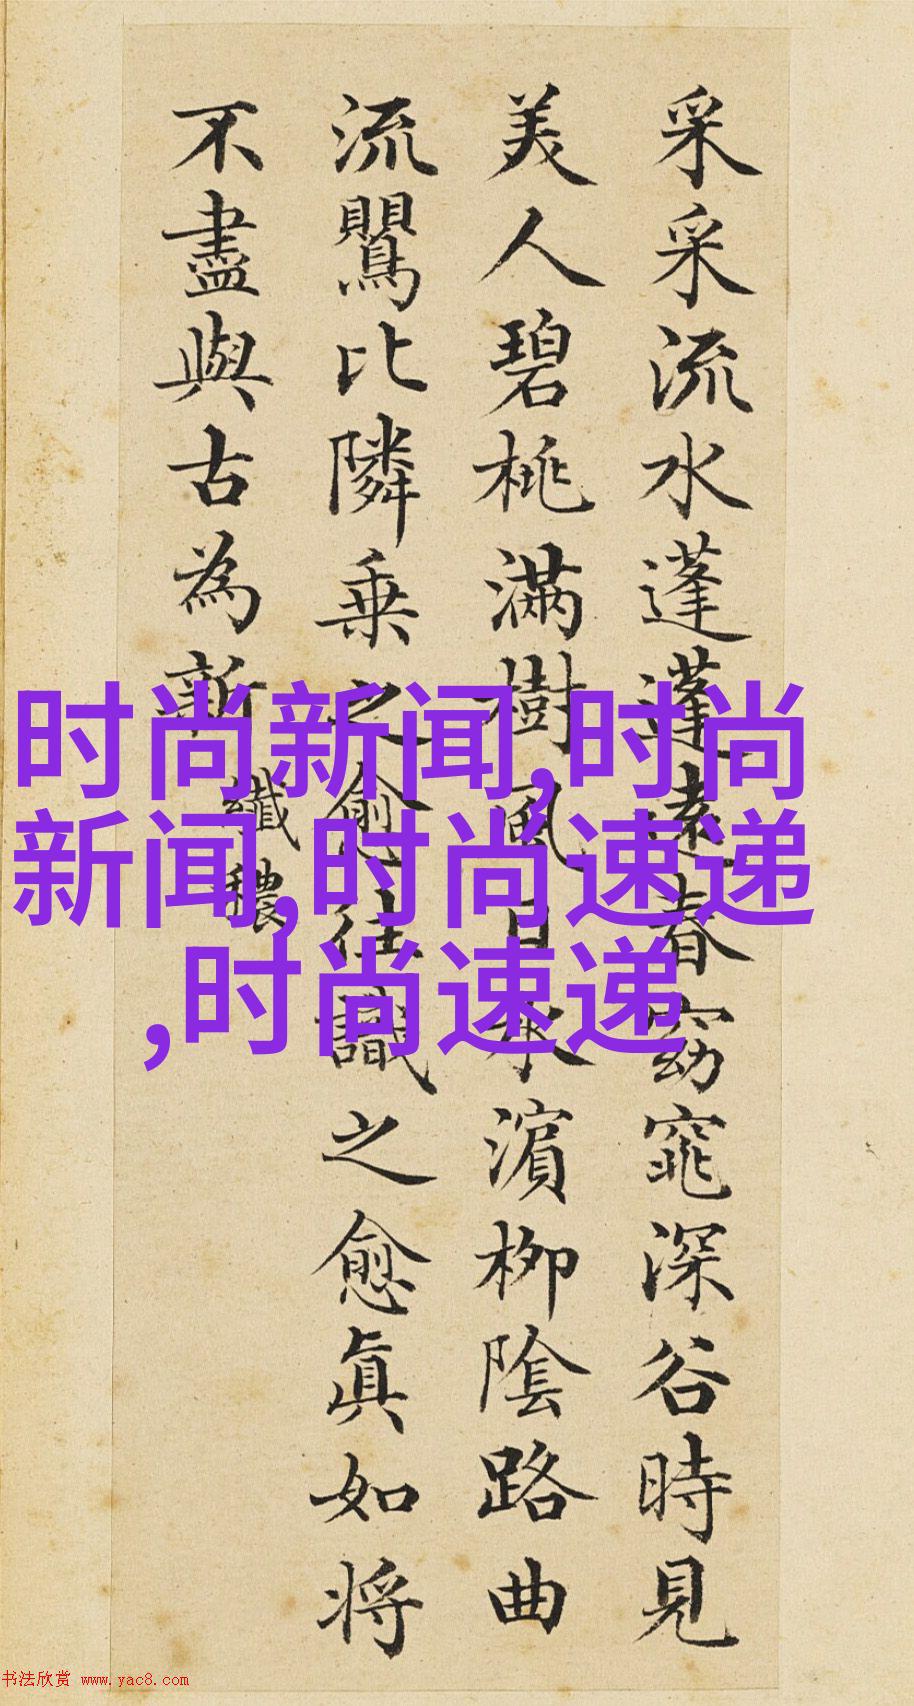 采采流水蓬蓬遠春窈窕深谷時見
美人碧桃滿樹風日水濵柳隂路曲
流鸎比隣乗之愈往識之愈眞如将
不盡與古為新
纖穠
时尚新闻,时尚
新闻,时尚速递
,时尚速递
书法欣赏 www.yac8.com